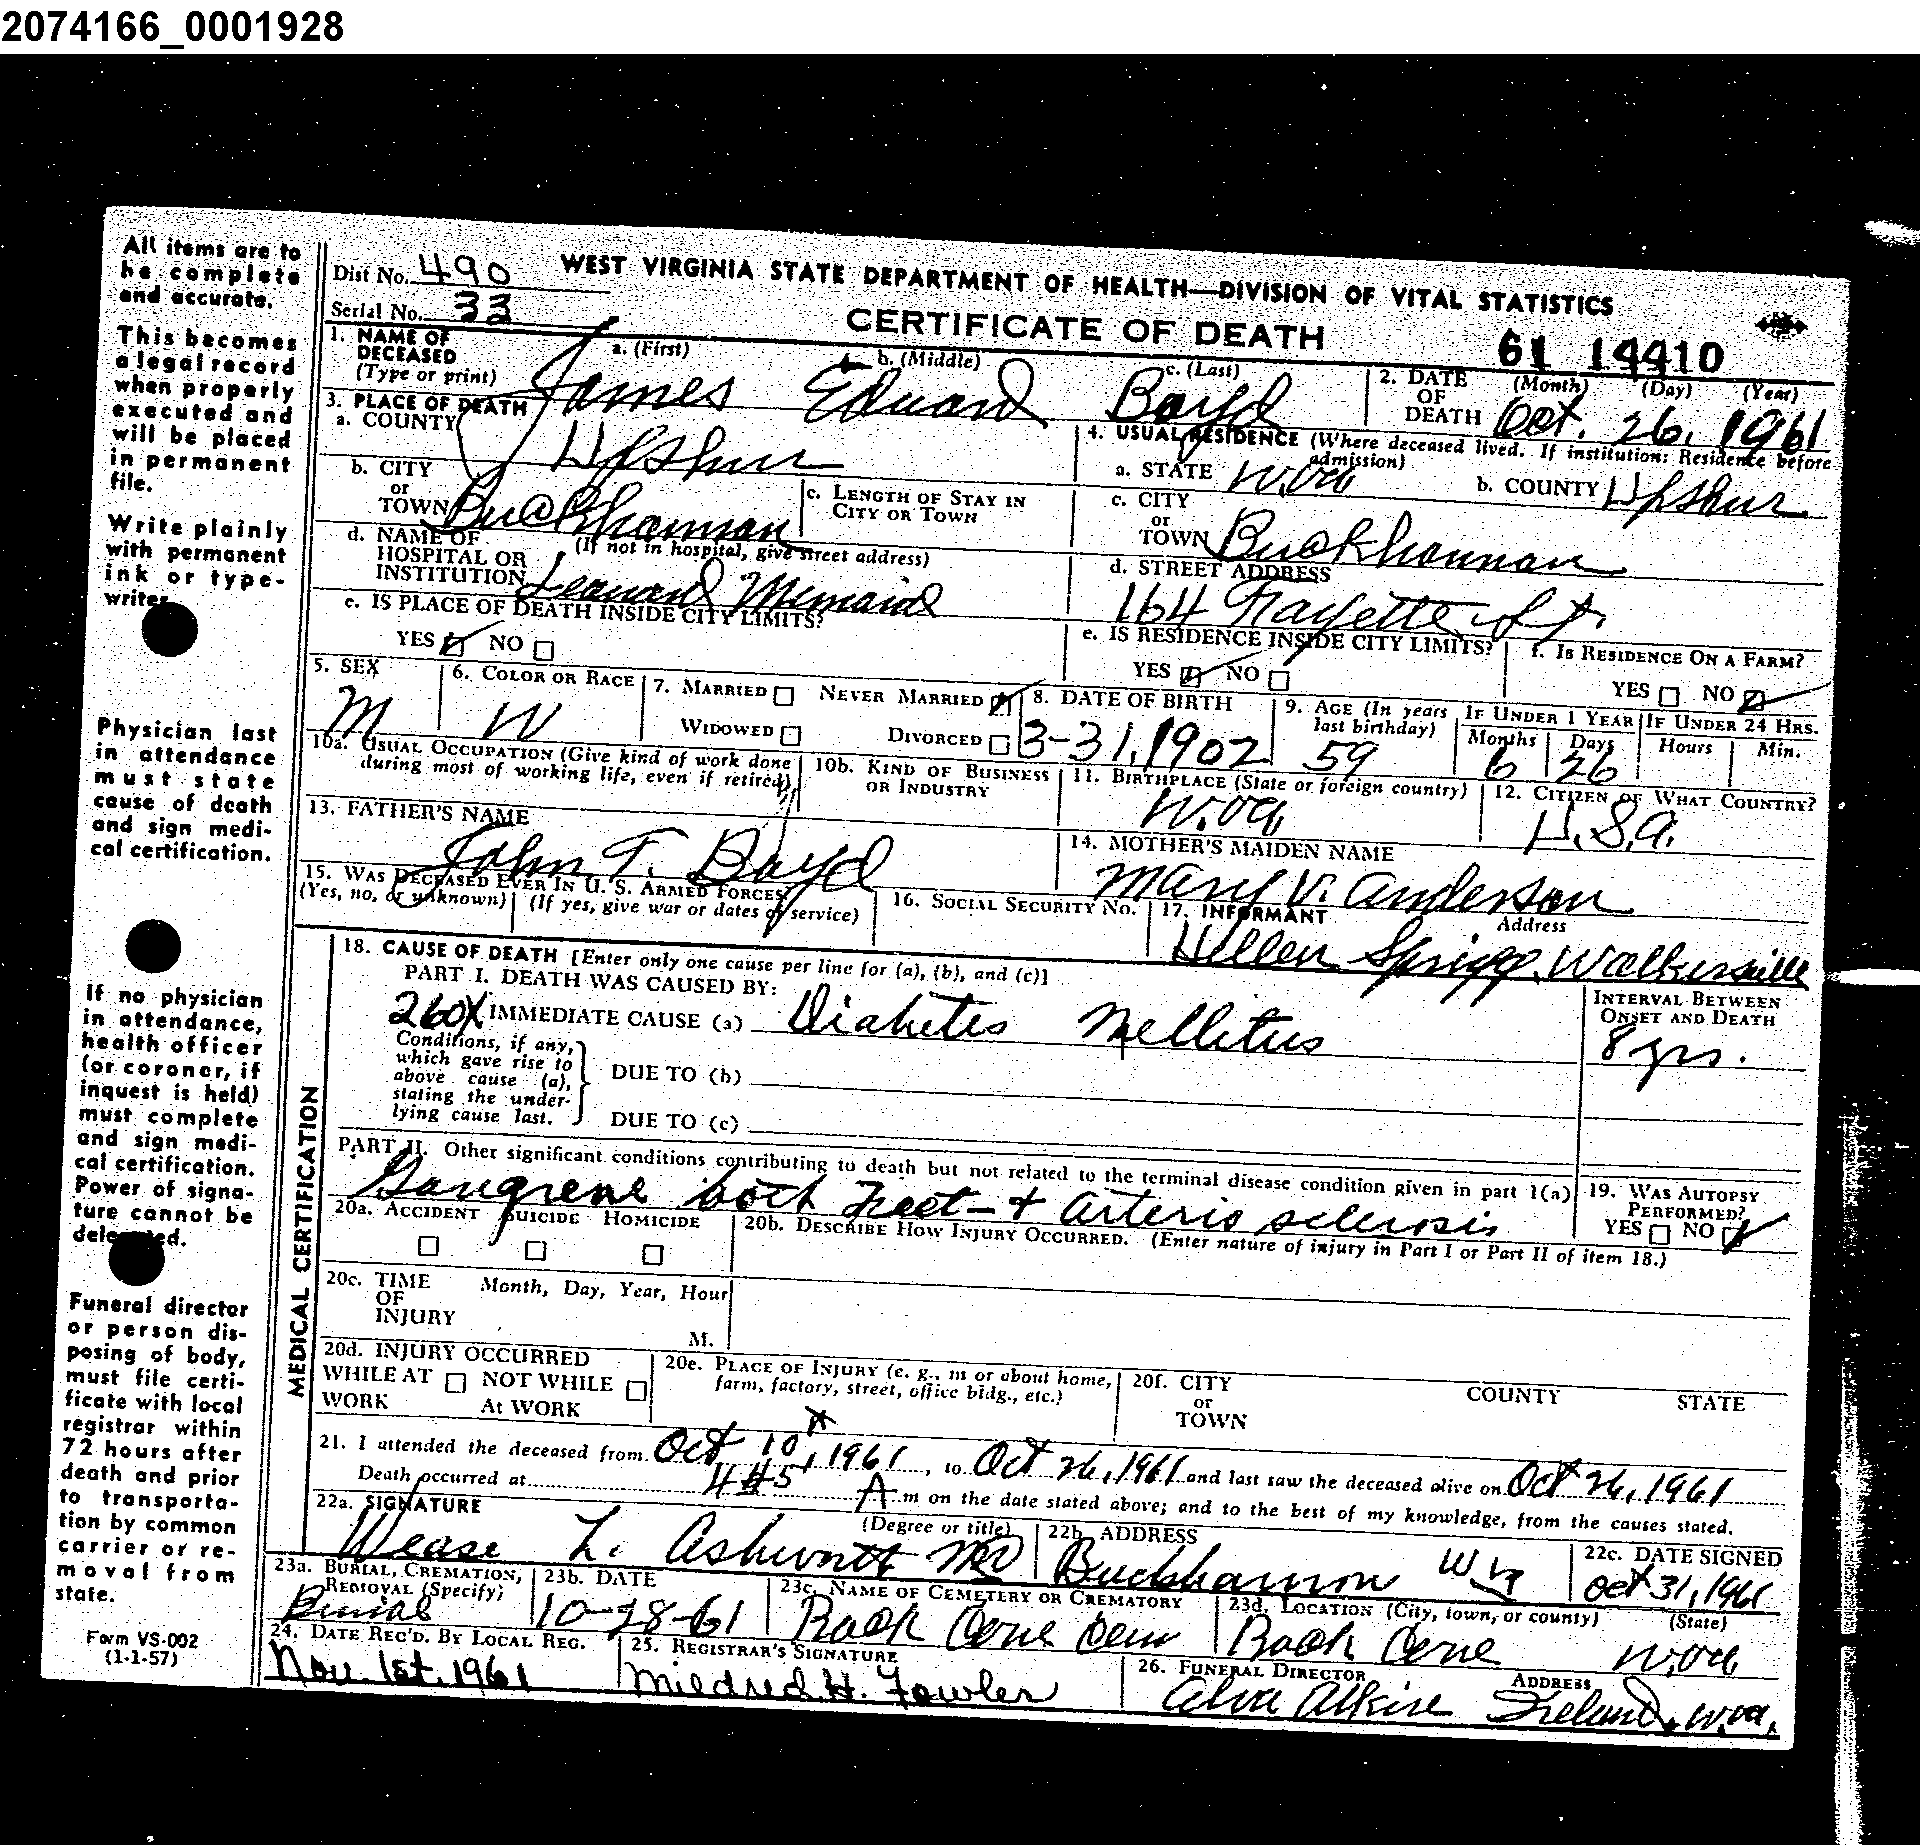 2074166_0001928
All items are to
be complete
and accurate.
This becomes
a legal record
when properly
executed and
will be placed
in permanent
file.
Write plainly
with permanent
ink or type-
writer.
Physician last
in attendance
must state
cause of death
and sign medi-
cal certification.
If no physician
in attendance,
health officer
(or coroner, if
inquest is held)
must complete
and sign medi-
cal certification.
Power of signa-
ture cannot be
delegated.
Funeral director
or person dis-
posing of body,
must file certi-
ficate with local
registrar within
72 hours after
death and prior
to transporta-
tion by common
carrier or re-
moval from
state.
Form VS-002
(1-1-57)
Dist No. 490 WEST VIRGINIA STATE DEPARTMENT OF HEALTH—DIVISION OF VITAL STATISTICS
Serial No. 33 CERTIFICATE OF DEATH 61 14410
1. NAME OF DECEASED (Type or print) a. (First) James b. (Middle) Edward c. (Last) Boyd
2. DATE OF DEATH (Month) (Day) (Year) Oct. 26, 1961
3. PLACE OF DEATH
a. COUNTY Upshur
4. USUAL RESIDENCE (Where deceased lived. If institution: Residence before admission)
a. STATE W.Va b. COUNTY Upshur
b. CITY or TOWN Buckhannon c. LENGTH OF STAY IN CITY OR TOWN
c. CITY or TOWN Buckhannon
d. NAME OF HOSPITAL OR INSTITUTION (If not in hospital, give street address) Leonard Memorial
d. STREET ADDRESS 164 Fayette St.
e. IS PLACE OF DEATH INSIDE CITY LIMITS?
YES NO
e. IS RESIDENCE INSIDE CITY LIMITS?
YES NO
f. IS RESIDENCE ON A FARM?
YES NO
5. SEX M
6. COLOR OR RACE W
7. MARRIED NEVER MARRIED
WIDOWED DIVORCED
8. DATE OF BIRTH 3-31, 1902
9. AGE (In years last birthday) 59
IF UNDER 1 YEAR Months 6 Days 26
IF UNDER 24 HRS. Hours Min.
10a. USUAL OCCUPATION (Give kind of work done during most of working life, even if retired)
10b. KIND OF BUSINESS OR INDUSTRY
11. BIRTHPLACE (State or foreign country) W.Va.
12. CITIZEN OF WHAT COUNTRY? U.S.A.
13. FATHER'S NAME John T. Boyd
14. MOTHER'S MAIDEN NAME Mary V. Anderson
15. WAS DECEASED EVER IN U. S. ARMED FORCES
(Yes, no, or unknown) (If yes, give war or dates of service)
16. SOCIAL SECURITY No.
17. INFORMANT Address
Hellen Sprigg, Walkersville
MEDICAL CERTIFICATION
18. CAUSE OF DEATH [Enter only one cause per line for (a), (b), and (c)]
PART I. DEATH WAS CAUSED BY:
260X IMMEDIATE CAUSE (a) Diabetes Mellitus
INTERVAL BETWEEN ONSET AND DEATH
8 yrs.
Conditions, if any, which gave rise to above cause (a), stating the underlying cause last.
DUE TO (b)
DUE TO (c)
PART II. Other significant conditions contributing to death but not related to the terminal disease condition given in part 1(a)
Gangrene both Feet - + Arterio sclerosis
19. WAS AUTOPSY PERFORMED?
YES NO
20a. ACCIDENT SUICIDE HOMICIDE
20b. DESCRIBE HOW INJURY OCCURRED. (Enter nature of injury in Part I or Part II of item 18.)
20c. TIME OF INJURY Month, Day, Year, Hour
M.
20d. INJURY OCCURRED
WHILE AT WORK NOT WHILE AT WORK
20e. PLACE OF INJURY (e. g., in or about home, farm, factory, street, office bldg., etc.)
20f. CITY or TOWN COUNTY STATE
21. I attended the deceased from Oct 10, 1961, to Oct 26, 1961 and last saw the deceased alive on Oct 26, 1961
Death occurred at 4 45 A m on the date stated above; and to the best of my knowledge, from the causes stated.
22a. SIGNATURE (Degree or title)
L. Ashworth MD
22b. ADDRESS Buckhannon W Va
22c. DATE SIGNED Oct 31, 1961
23a. BURIAL, CREMATION, REMOVAL (Specify) Burial
23b. DATE 10-28-61
23c. NAME OF CEMETERY OR CREMATORY Rock Cave Cem
23d. LOCATION (City, town, or county) (State) Rock Cave W.Va
24. DATE REC'D. BY LOCAL REG. Nov. 1st, 1961
25. REGISTRAR'S SIGNATURE Mildred H. Fowler
26. FUNERAL DIRECTOR ADDRESS
Alva Alkire Ireland, W.Va.